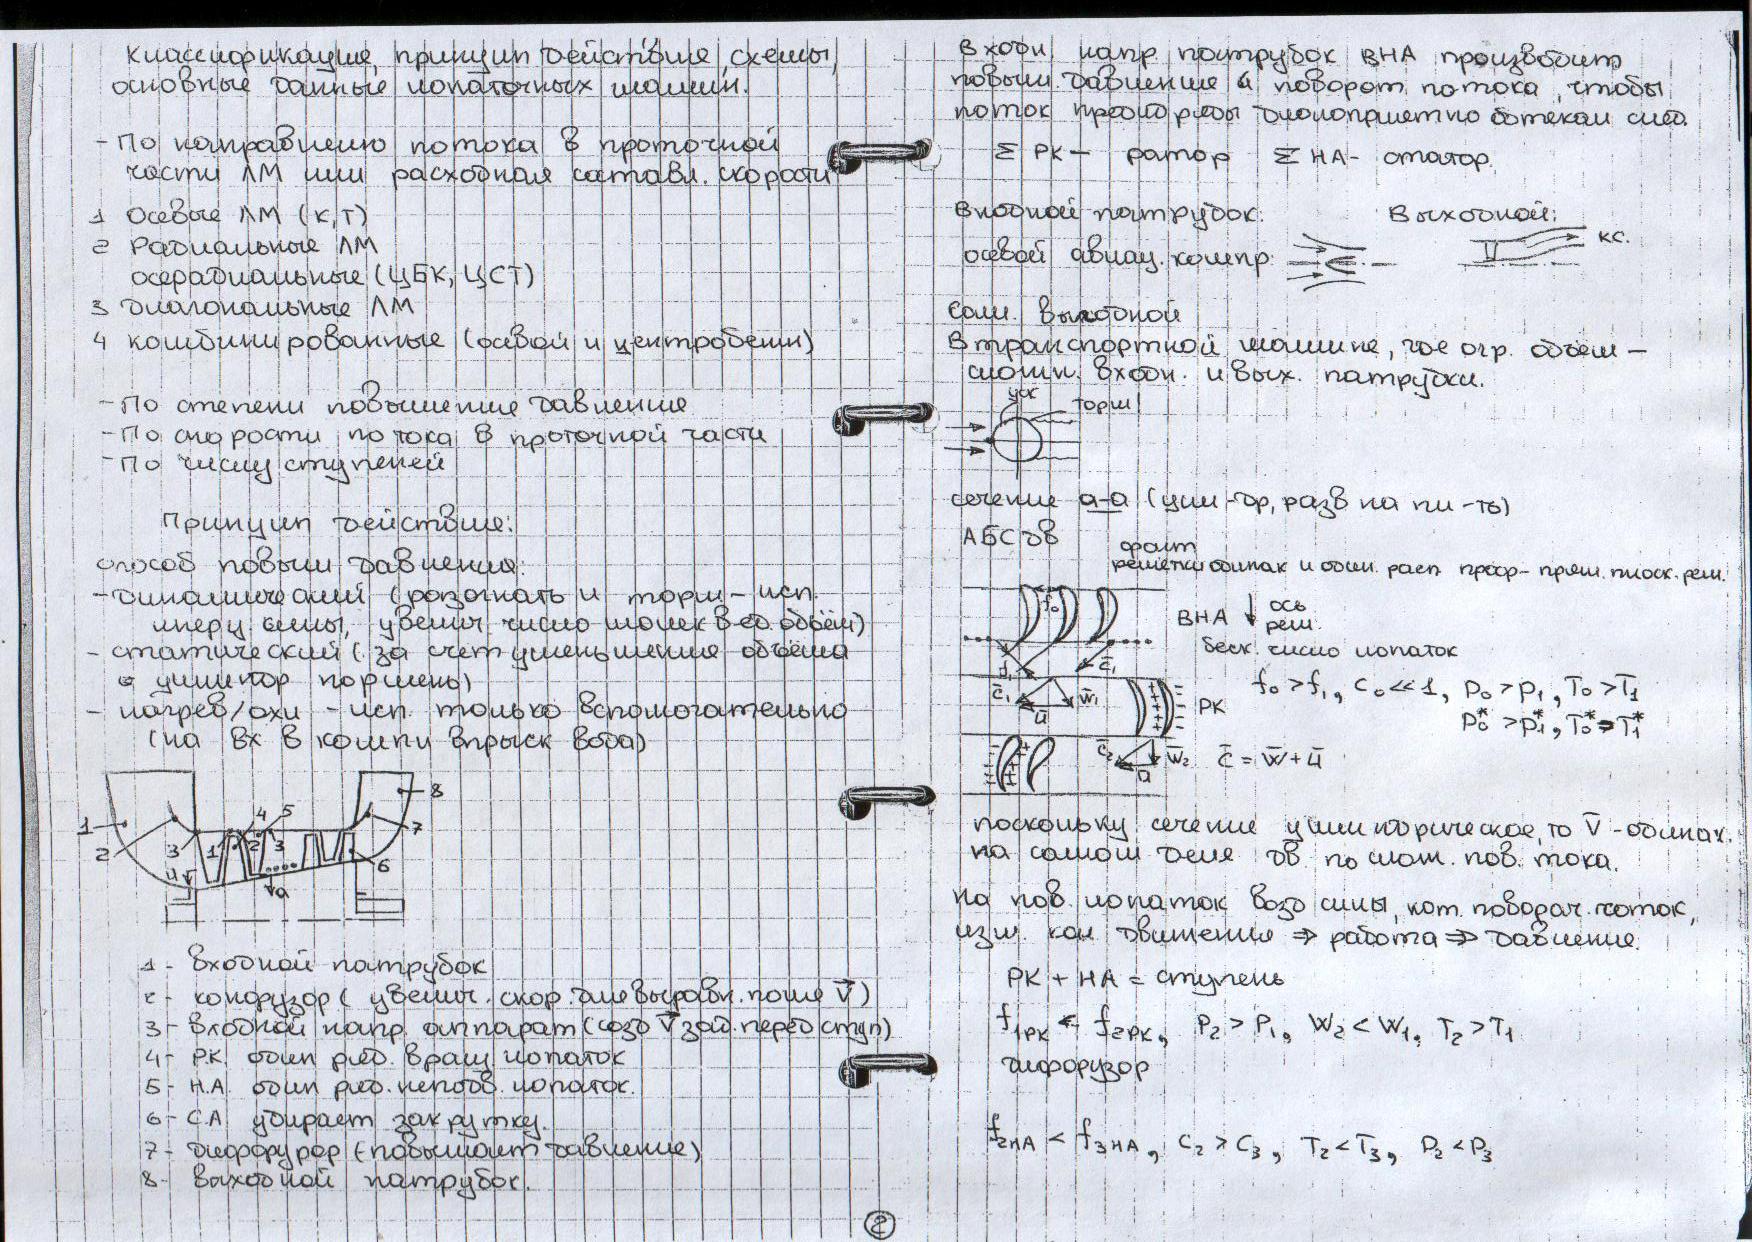 Классификация, принцип действия, схемы,
основные данные лопаточных машин.
- По направлению потока в проточной
части ЛМ или расходная составл. скорости
1 Осевые ЛМ (К,Т)
2 Радиальные ЛМ
осерадиальные (ЦБК, ЦСТ)
3 Диагональные ЛМ
4 комбинированные (осевой и центробежн)
- По степени повышения давления
- По скорости потока в проточной части
- По числу ступеней
Принцип действия:
способ повыш давления:
- динамический (разогнать и торм - исп.
инерц силы, увелич число молек в ед. объём)
- статический (за счет уменьшения объёма
цилиндр поршень)
- нагрев/охл - исп. только вспомогательно
(на вх в компл впрыск вода)
1 2 3 4 1 2 3 4 5 6 7 8 а
1 - входной патрубок
2 - конфузор (увелич. скор. для выравн. поля V̄)
3 - входной напр. аппарат (созд V̄ зад. перед ступ)
4 - Р.К. один ряд. вращ лопаток
5 - Н.А. один ряд. неподв. лопаток.
6 - С.А убирает закрутку.
7 - диффузор (повышает давление)
8 - выходной патрубок.
Входн напр патрубок ВНА производит
повыш. давление и поворот потока, чтобы
поток
Σ РК - ратор Σ НА - статор.
Входной патрубок: Выходной:
осевой авиац. компр: КС.
выходной
В транспортной машине, где огр. объём -
входн. и вых. патрубки.
уск торм
сечение а-а (цилин-др, разв на пл-ть)
решетки одинак и один. расп простр - прям. плоск. реш.
f₀ ВНА ↓ ось реш.
беск. число лопаток
f₀ > f₁, C₀ << 1, P₀ > P₁, T₀ > T₁
c̄₁ ū w̄₁ РК
c̄₂ ū w̄₂ c̄ = w̄ + ū
поскольку сечение цилиндрическое, то V̄ - одинак.
на самом деле дв. по пов. тока.
на пов. лопаток возд силы, кот. поворач. поток,
изм. кол движения ⇒ работа ⇒ давление.
РК + НА = ступень
f₁РК < f₂РК, P₂ > P₁, W₂ < W₁, T₂ > T₁
диффузор
f₂НА < f₃НА, C₂ > C₃, T₂ < T₃, P₂ < P₃
2